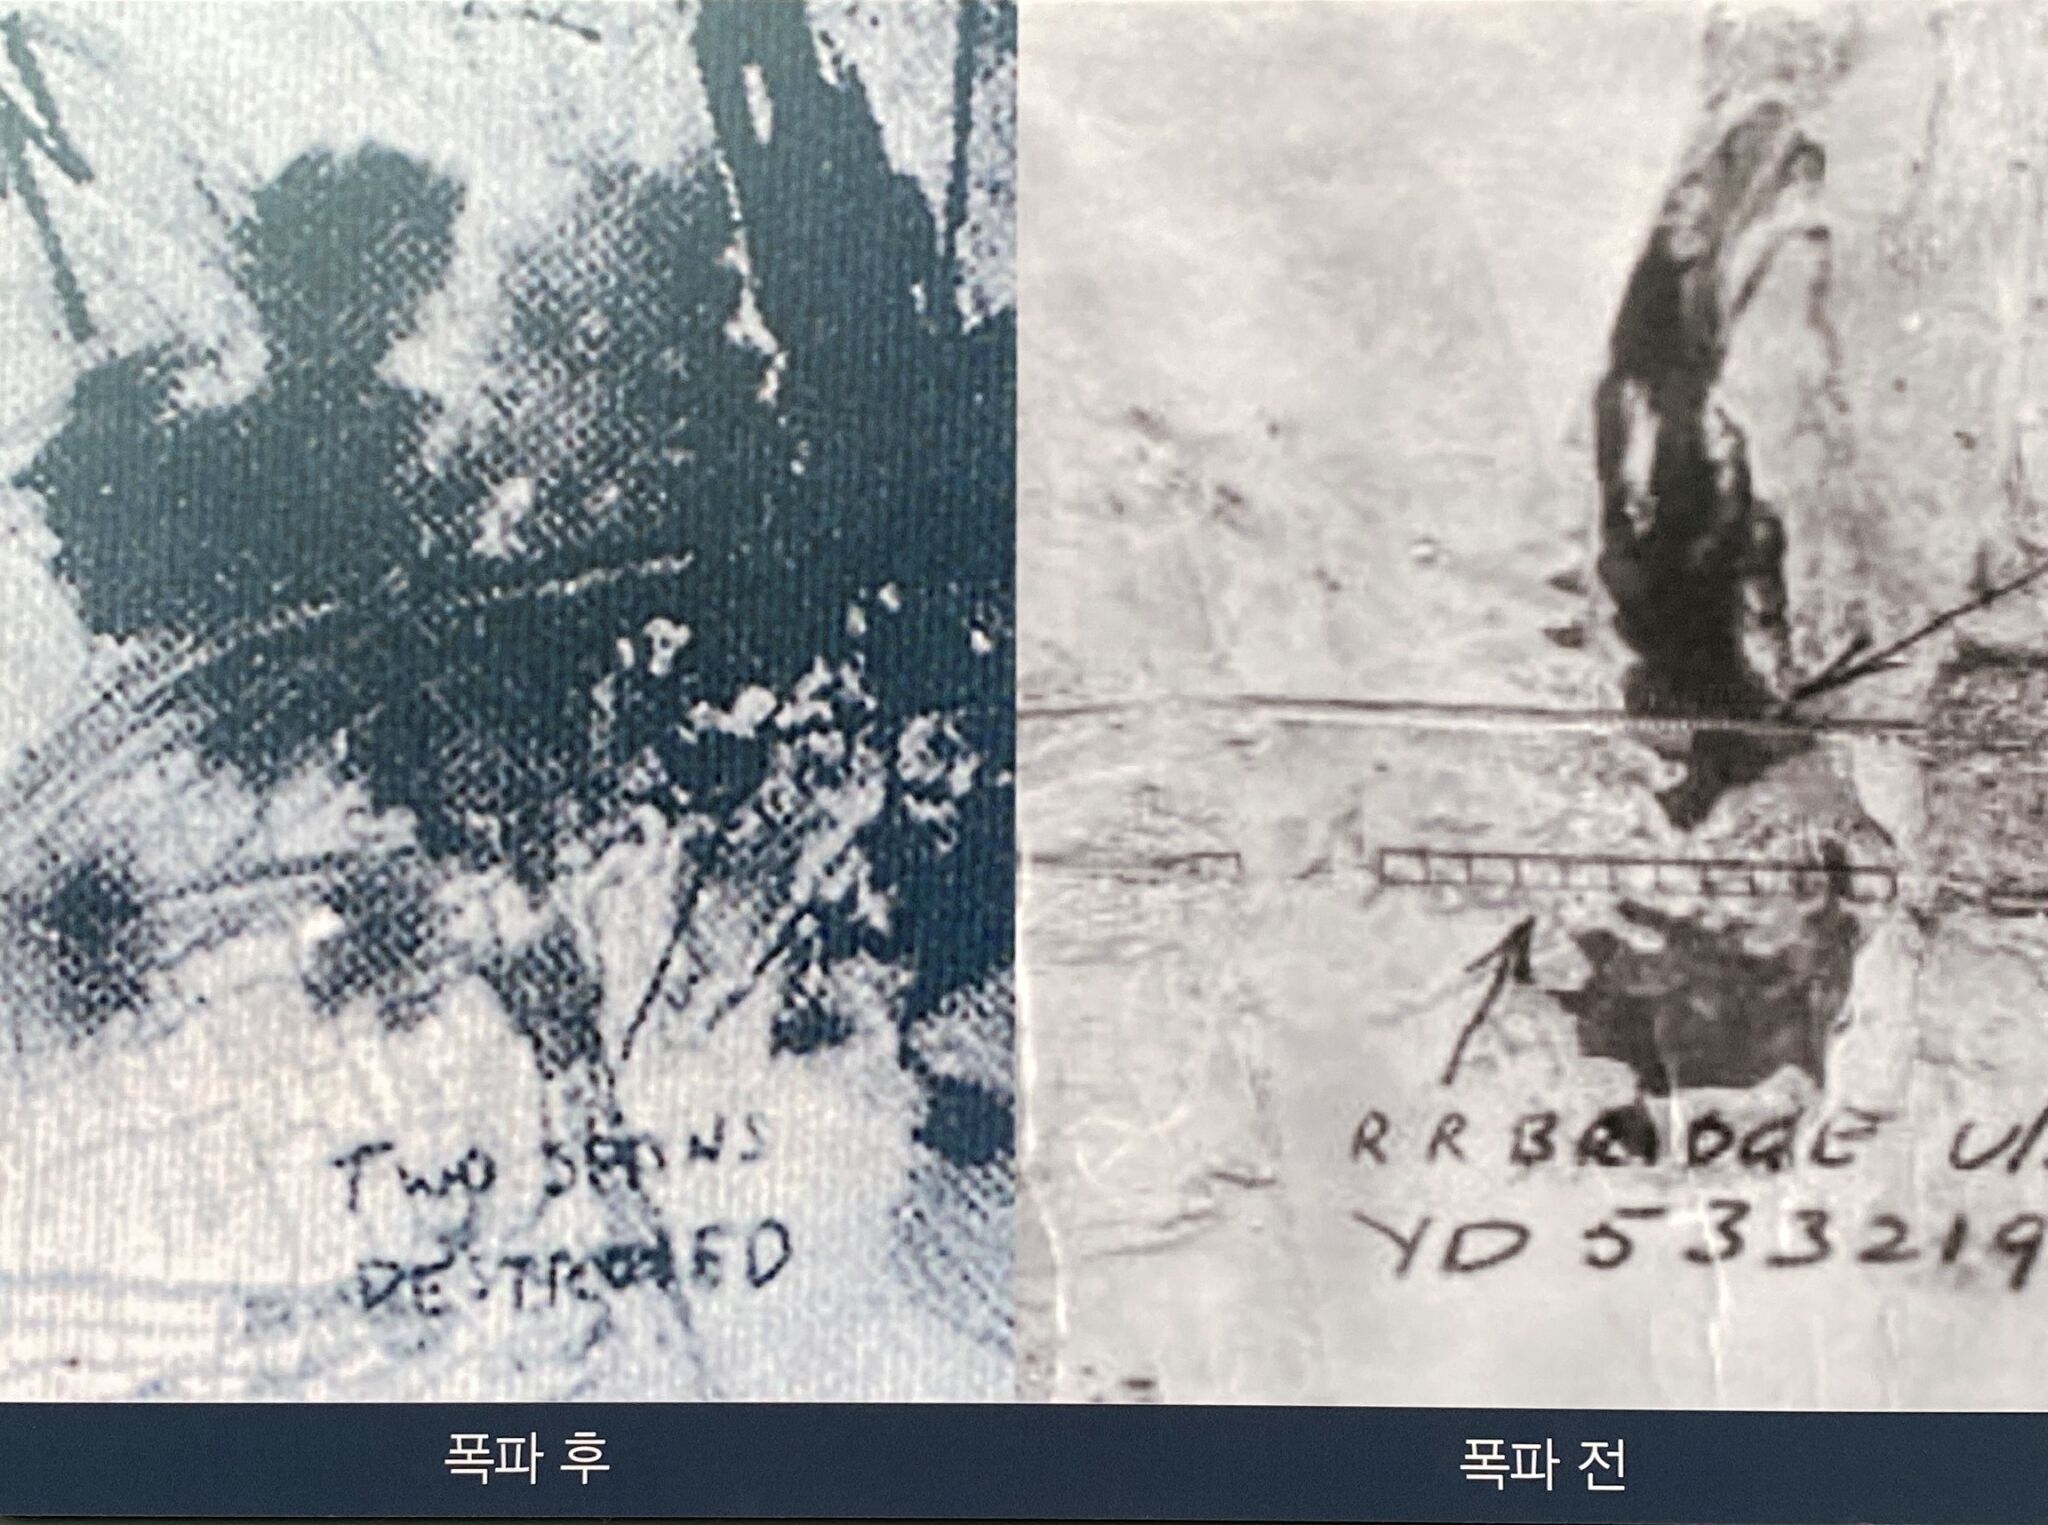 TWO SPANS
DESTROYED
RR BRIDGE
YD 533219
폭파 후
폭파 전